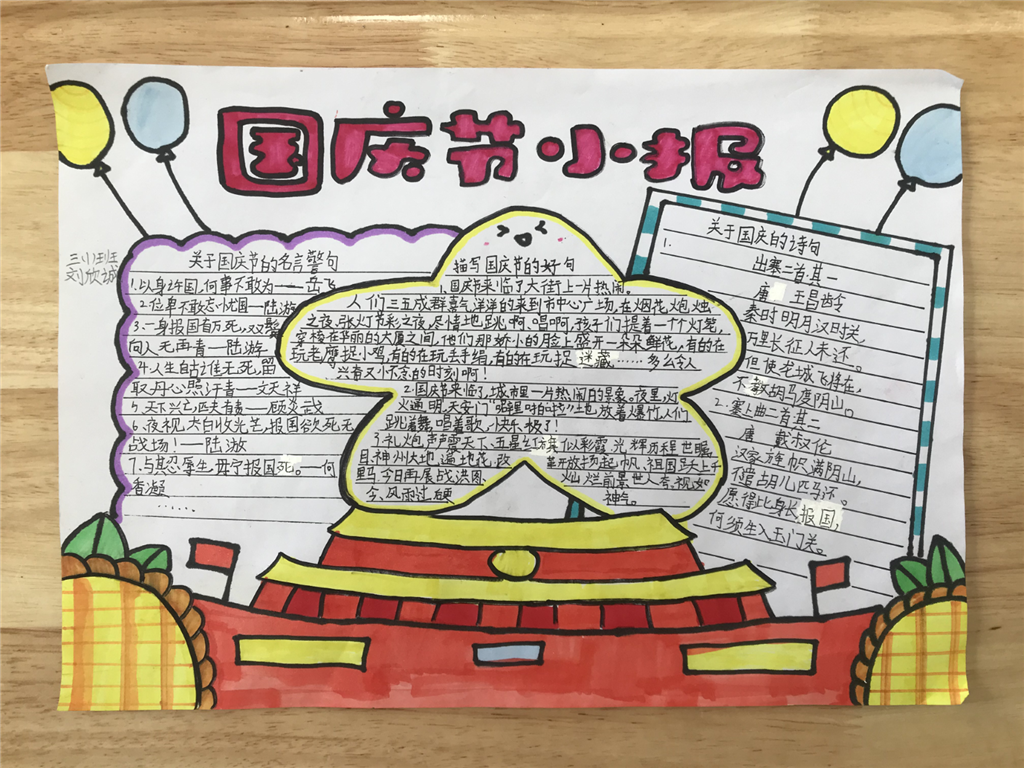 国庆节小报
三(1)班
刘欣城
关于国庆节的名言警句
1.以身许国,何事不敢为——岳飞
2.位卑不敢忘忧国—陆游
3.一身报国有万死,双鬓
向人无再青—陆游
4.人生自古谁无死,留
取丹心照汗青—文天祥
5.天下兴亡,匹夫有责—顾炎武
6.夜视太白收光芒,报国欲死无
战场!—陆游
7.与其忍辱生,毋宁报国死。—何
香凝
……
描写国庆节的好句
国庆节来临了大街上一片热闹。
人们三五成群喜气洋洋的来到市中心广场,在烟花炮烛
之夜,张灯节彩之夜,尽情地跳啊、唱啊,孩子们提着一个个灯笼,
穿梭在华丽的大厦之间,他们那娇小的脸上盛开一朵朵鲜花,有的在
玩老鹰捉小鸡,有的在玩丢手绢,有的在玩捉迷藏……多么令人
兴奋又怀念的时刻啊!
2.国庆节来临了,城市里一片热闹的景象。夜里,灯
火通明,天安门"噼里啪啦"地放着爆竹,人们
跳着舞,唱着歌,快乐极了!
3.礼炮声声震天下,五星红旗似彩霞,光辉历程世瞩
目,神州大地遍地花,改革开放扬起帆,祖国跃上千
里马,今日再展战洪图,灿烂前景世人夸,视如
今,风雨过硬神气。
关于国庆的诗句
1.
出塞二首·其一
唐 王昌龄
秦时明月汉时关,
万里长征人未还。
但使龙城飞将在,
不教胡马度阴山。
2.塞上曲二首其二
唐 戴叔伦
汉家旌帜满阴山,
不遣胡儿匹马还。
愿得此身长报国,
何须生入玉门关。